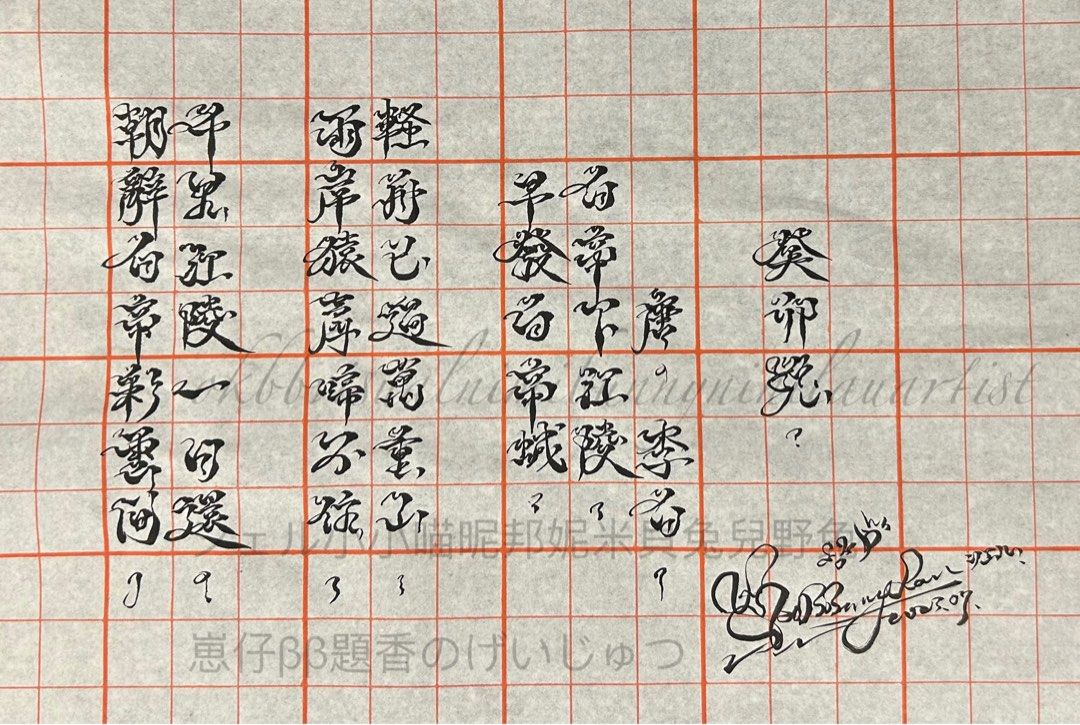 朝辭白帝彩雲間
千里江陵一日還
兩岸猿聲啼不住
輕舟已過萬重山
早發白帝城
白帝下江陵
唐 李白
癸卯兔
2023.07.
小小喵呢邦妮米貝兔兒野兔
崽仔β3題香のげいじゅつ